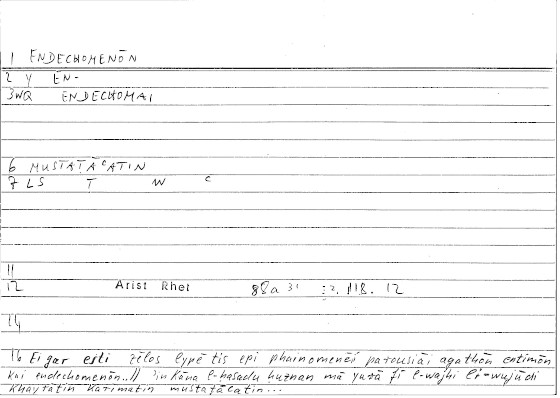 1 ENDECHOMENŌN
2 Y EN-
3WQ ENDECHOMAI
6 MUSTATĀᶜATIN
7 LS T W C
11
12 Arist Rhet 88a 31 :2. 118. 12
14
16 Ei gar esti zēlos lypē tis epi phainomenēi parousiāi agathōn entimōn
kai endechomenōn..// ʾin kāna l-ḥasadu ḥuznan mā yurā fī l-wajhi li-wujūdi
khayrātin karīmatin mustaṭāᶜatin...